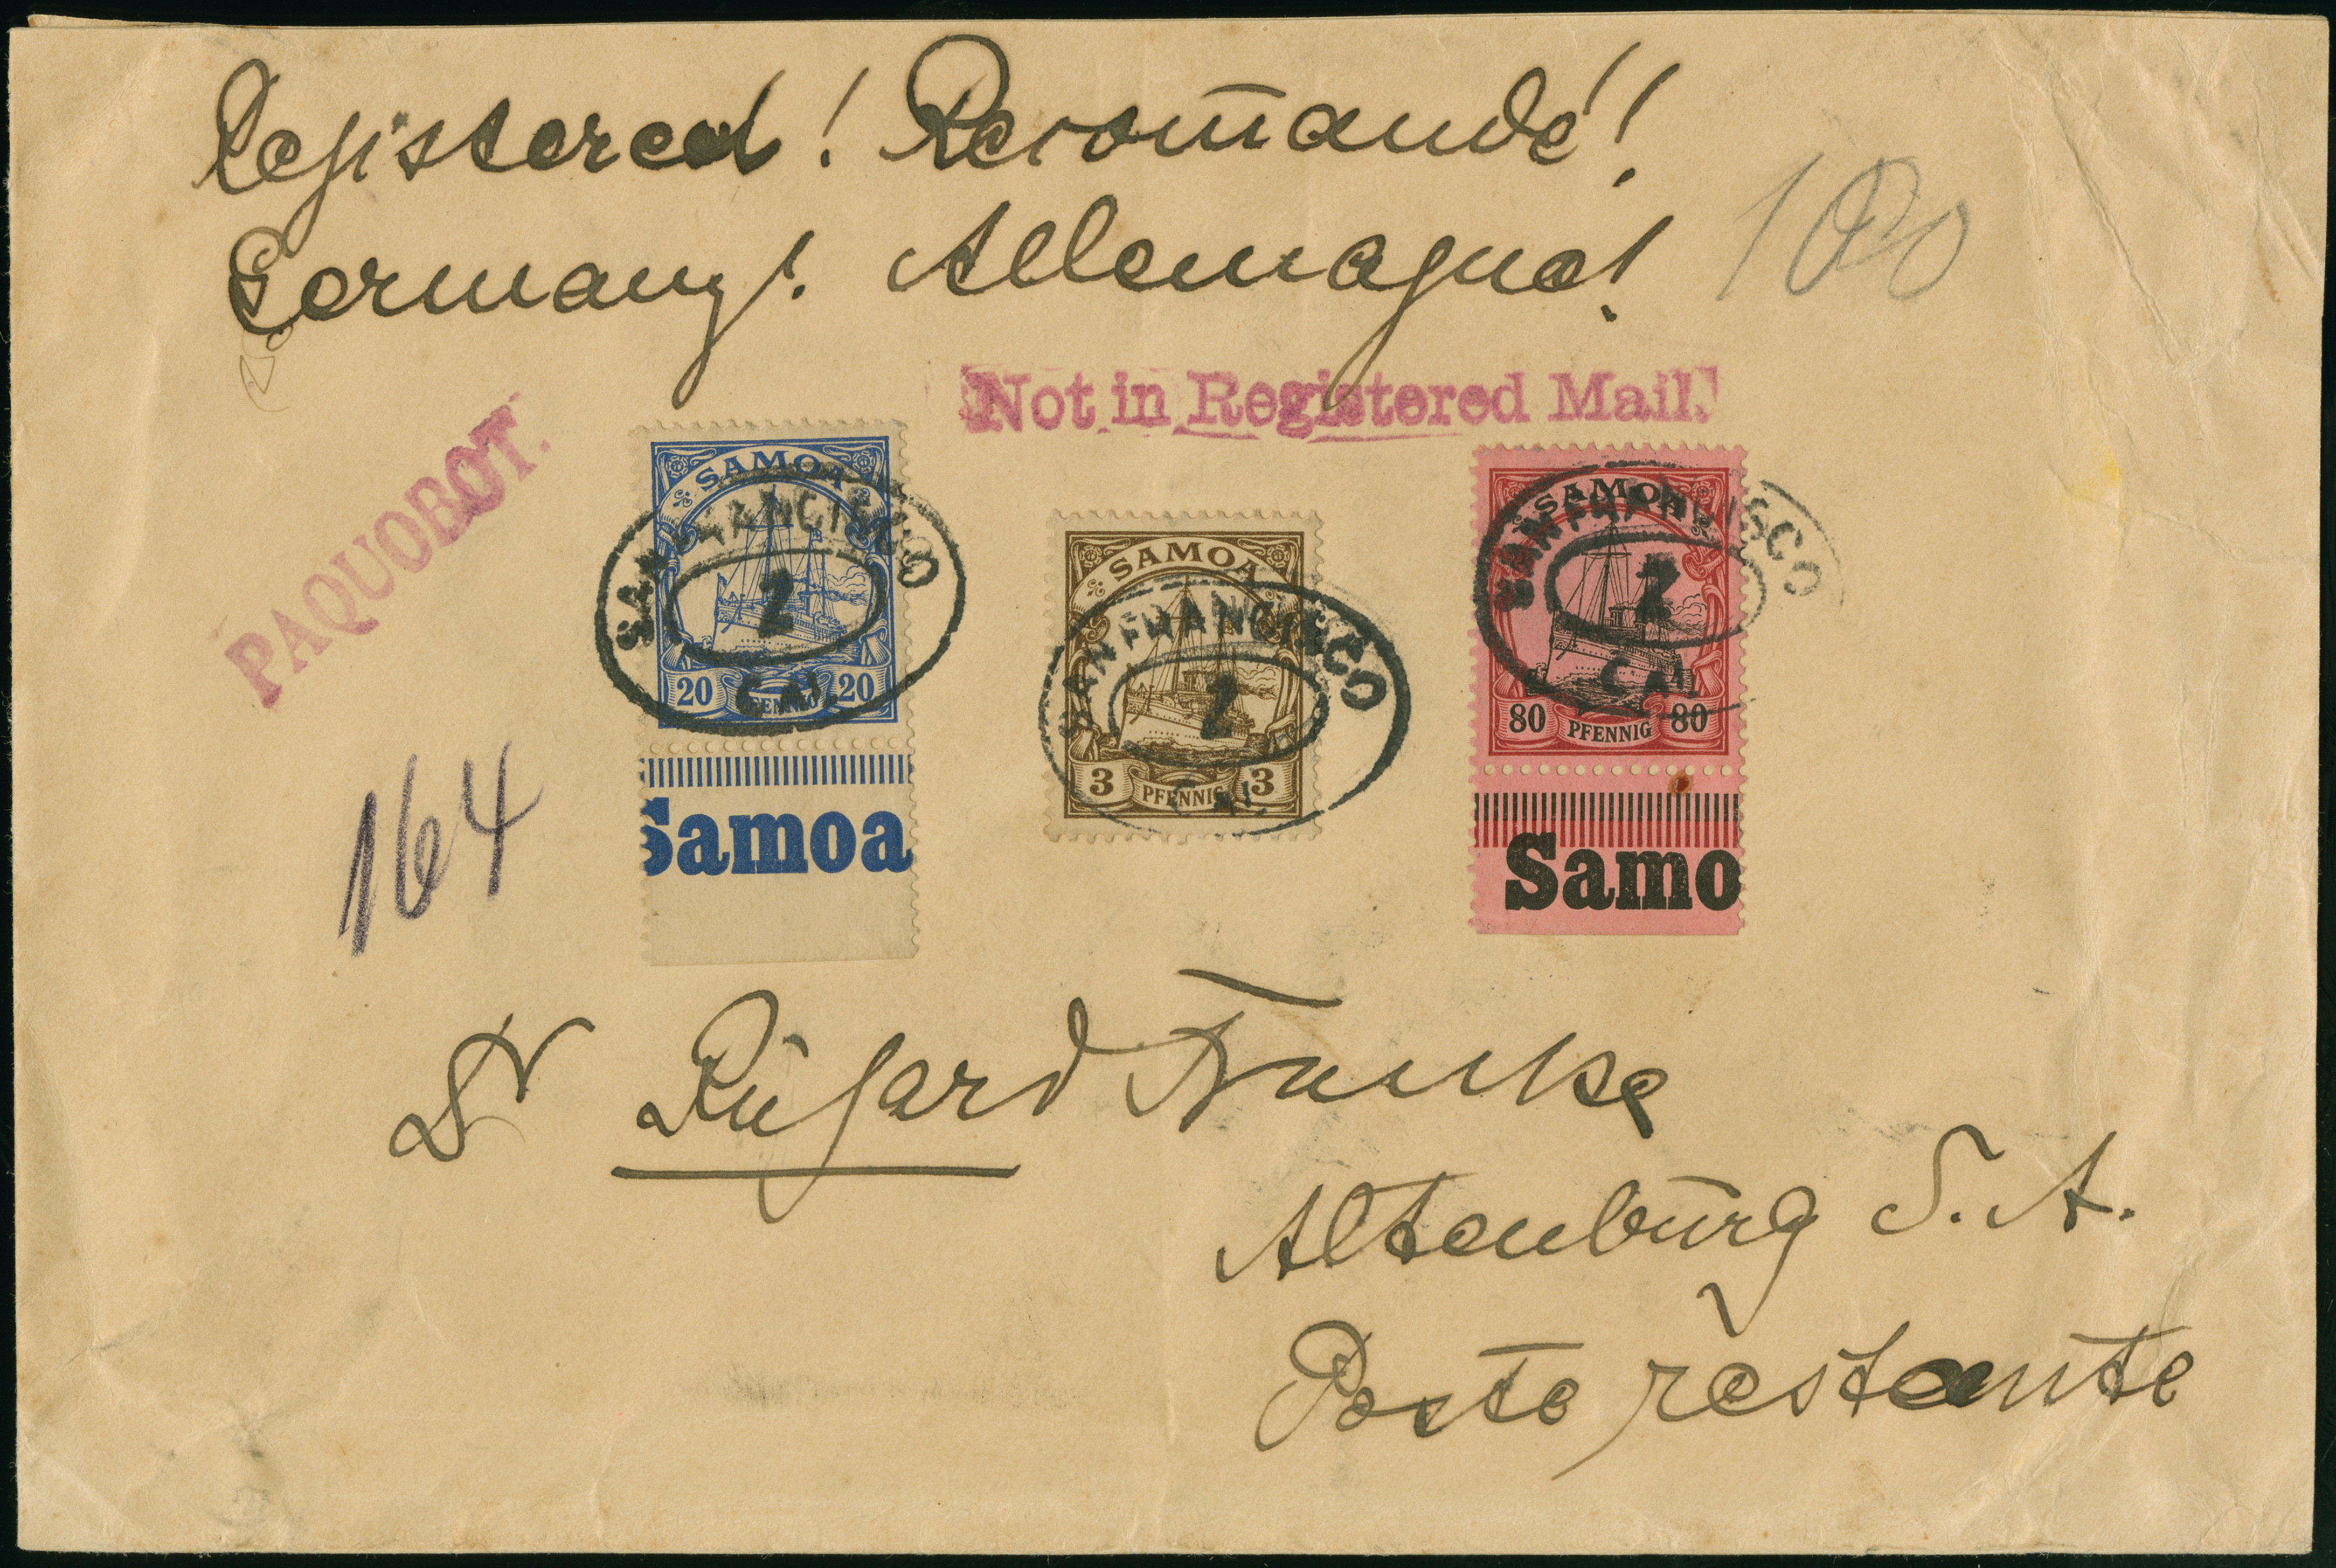 Registered! Recom̄andé!
Germany! Allemagne!
100
Not in Registered Mail.
PAQUOBOT.
SAMOA
SAN FRANCISCO
2
CAL
20 PFENNIG 20
Samoa
SAMOA
SAN FRANCISCO
2
CAL
3 PFENNIG 3
SAMOA
SAN FRANCISCO
2
CAL
80 PFENNIG 80
Samo
164
Dr Franke
Altenburg S. A.
Poste restante